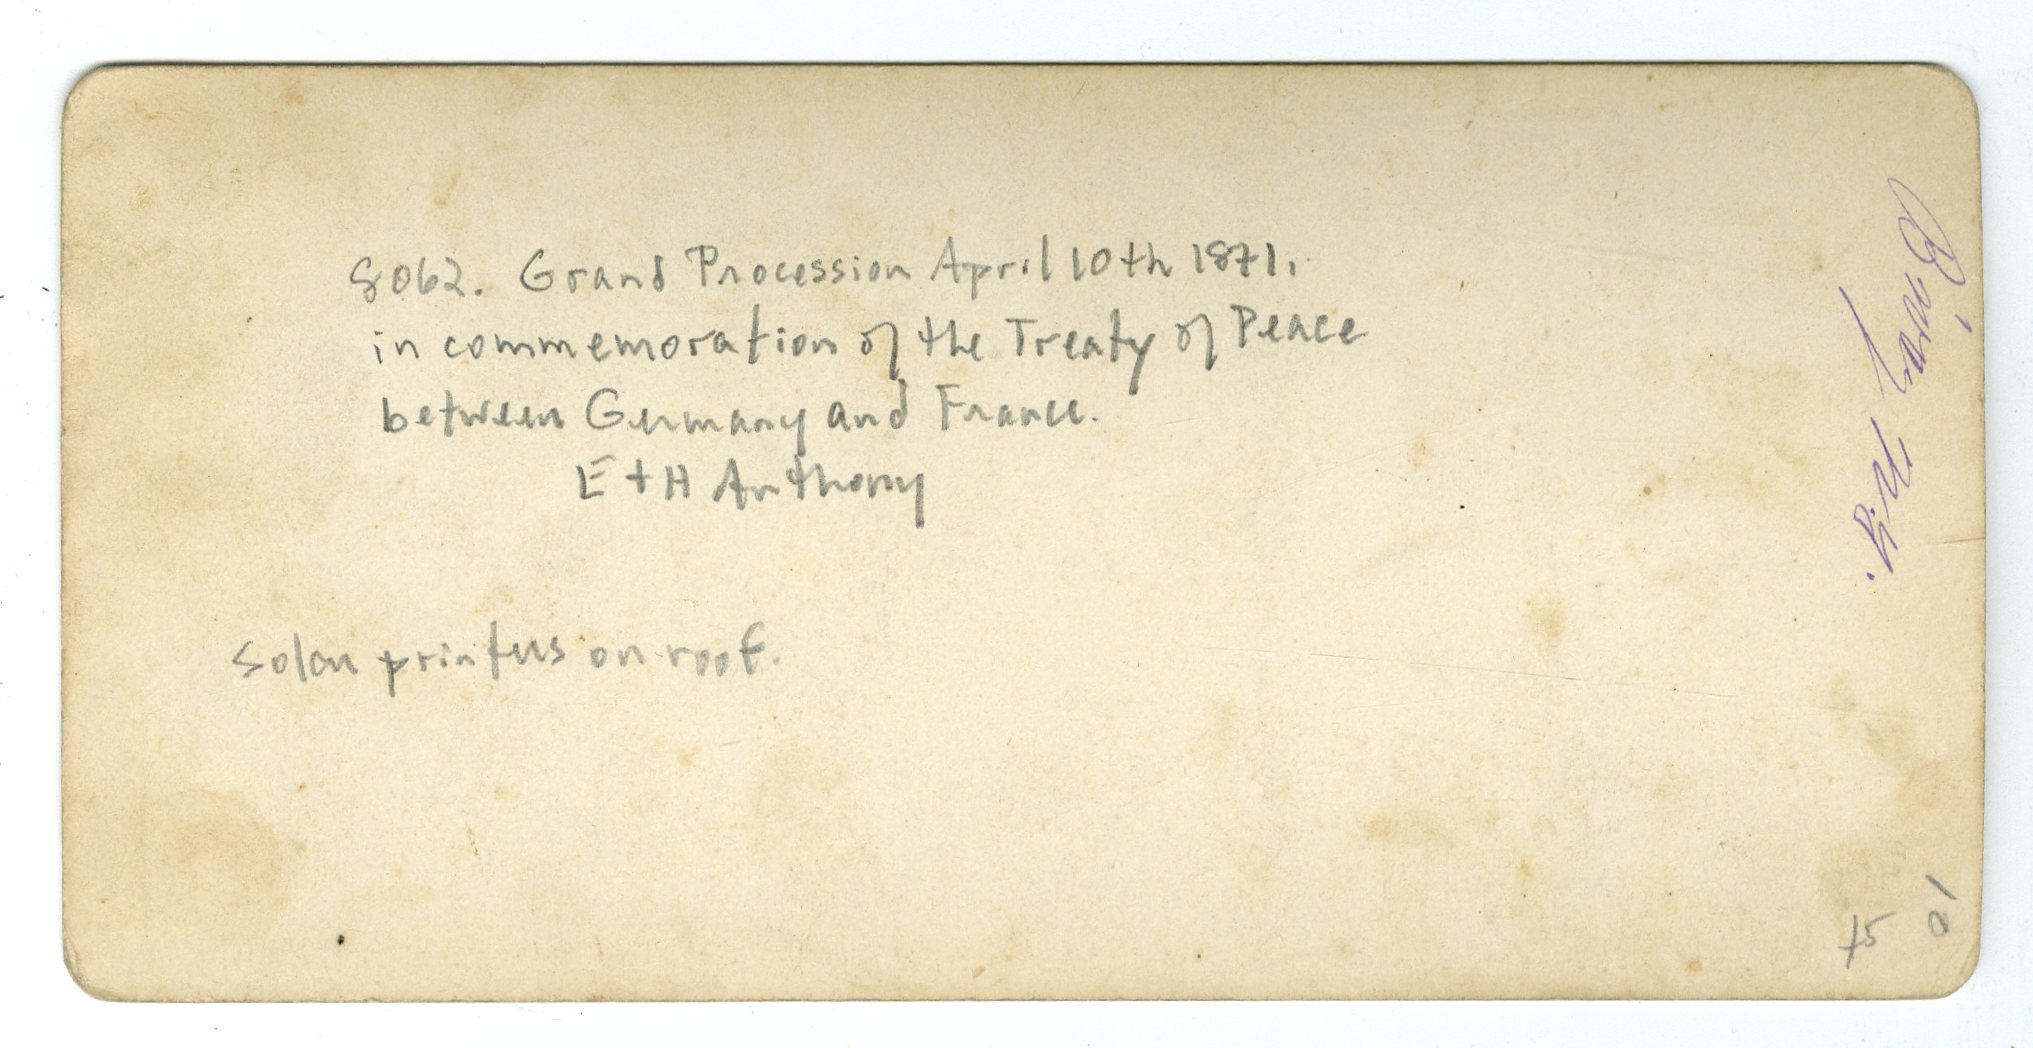 8062. Grand Procession April 10th 1871.
in commemoration of the Treaty of Peace
between Germany and France.
E + H Anthony
Solar printers on roof.
10
75